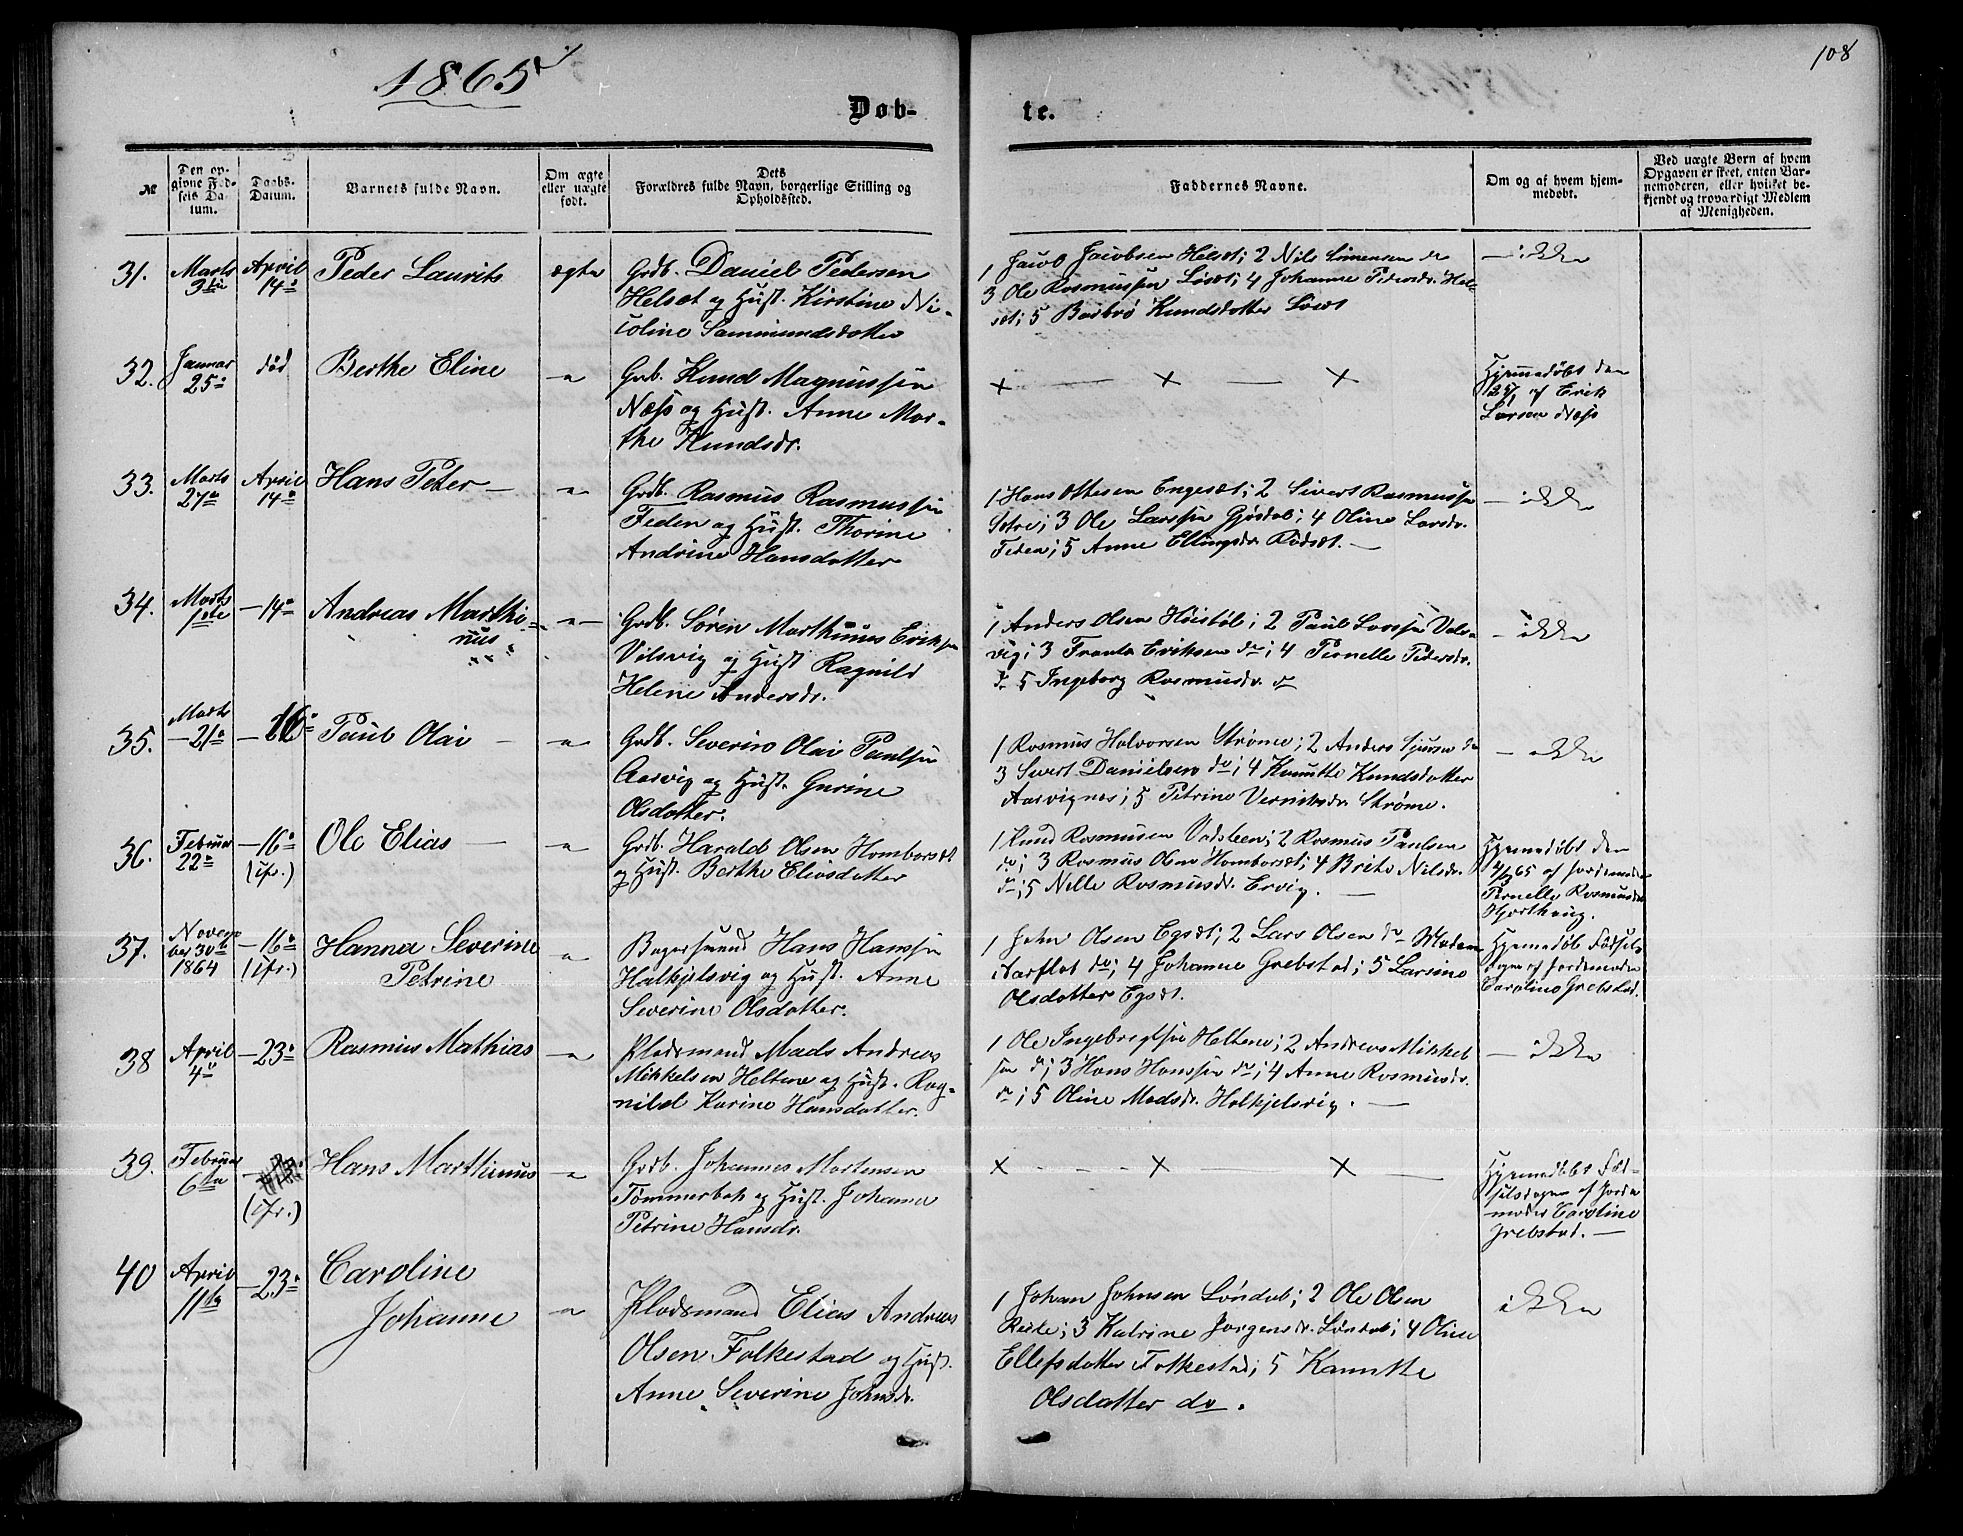 1865
108
Døb-
te.
№
Den op-
givne Fød-
sels Da-
tum.
Daabs-
Datum.
Barnets fulde Navn.
Om ægte
eller uægte
født.
Dets
Forældres fulde Navn, borgerlige Stilling og
Opholdssted.
Faddernes Navne.
Om og af hvem hjem-
medøbt.
Ved uægte Børn af hvem
Opgaven er skeet, enten Bar-
nemoderen, eller hvilket be-
kjendt og troværdigt Medlem
af Menigheden.
31.
Marts
3die
April
14de
Peder Laurits
ægte
Grdb. Daniel Pedersen
Helset og Hust. Kirstine Ni-
coline Sammundsdatter
1 Jacob Jacobsen Helset; 2 Nils Simensen do
3 Ole Rasmussen Löset; 4 Johanne Pedersdr. Hel-
set; 5 Barbrö Knudsdatter Löset
— ikke
32.
Januar
25de
død
Berthe Eline
—"—
Grdb. Knud Magnussen
Næss og Hust. Anne Mar-
the Knudsdr.
× — × — ×
Hjemmedøbt den
25/1 af Erik
Larsen Næss
33.
Marts
27de
April
14de
Hans Peter —
—"—
Grdb. Rasmus Rasmussen
Feden og Hust. Thorine
Andrine Hansdatter
1 Hans Ottesen Engeset; 2 Sivert Rasmussen
Sætre; 3 Ole Larssen Gjösdal; 4 Oline Larsdr.
Feden; 5 Anne Ellingsdr. Rödset. —
— ikke
34.
Marts
1ste
— 14de
Andreas Marthi-
nus
—"—
Grdb. Søren Marthinus Eriksen
Vilsvig og Hust. Ragnild
Helene Andersdr.
1 Anders Olsen Höistöl; 2 Paul Larssen Vels-
vig; 3 Frants Eriksen do; 4 Pernelle Pedersdr.
do 5 Ingeborg Rasmusdr. do
— ikke
35.
Marts
— 21de
— 16de
Paul Olai —
—"—
Grdb. Severin Olai Paulsen
Aarvig og Hust. Gurine
Olsdatter.
1 Rasmus Halvorsen Ströme; 2 Anders Sjursen do
3 Sivert Danielsen do; 4 Knutte Knudsdatter
Aarvignes; 5 Petrine Verniksdr. Ströme.
— ikke
36.
Februar
22de
— 16de
(ifr.)
Ole Elias —
—"—
Grdb. Harald Olsen Homborset
og Hust. Berthe Eliasdatter
1 Knud Rasmusen Vadsteen; 2 Rasmus Paulsen
do; 3 Rasmus Olsen Homborset; 4 Brite Nilsdr.
do; 5 Nelle Rasmusdr. Ervig. —
Hjemmedøbt den
4/3 65 af Jordemoder
Pernelle Rasmusdr.
Hjorthoug.
37.
Novem-
ber 30te
1864
— 16de
(ifr.)
Hanna Severine
Petrine
—"—
Bagersvend Hans Hanssen
Halkjelsvig og Hust. Anne
Severine Olsdatter.
1 John Olsen Egset; 2 Lars Olsen do Madam
Aarflot do; 4 Johanne Grebstad; 5 Larsine
Olsdatter Egset.
Hjemmedøb. Fødsels-
dagen af Jordemoder
Caroline Grebstad.
38
April
4de
— 23de
Rasmus Mathias
—"—
Pladsmand Mads Andreas
Mikkelsen Heltene og Hust. Rag-
nild Karine Hansdatter.
1 Ole Ingebregtsen Heltene; 2 Andreas Mikkel-
sen do; 3 Hans Hanssen do; 4 Anne Rasmusdr.
do; 5 Oline Madsdr. Halkjelsvig. —
— ikke
39.
Februar
6te
(ifr.)
Hans Marthinus
—"—
Grdb. Johannes Mortensen
Tömmerbak og Hust. Johanne
Petrine Hansdr.
× - - - × × —
Hjemmedøbt Fød-
selsdagen af Jorde-
moder Caroline
Grebstad. —
40
April
11te
— 23de
Caroline
Johanne
—"—
Pladsmand Elias Andreas
Olsen Folkestad og Hust.
Anne Severine Johnsdr.
1 Johan Johnsen Löndal; 2 Ole Olsen
Reite; 3 Katrine Jørgensdr. Löndal; 4 Oline
Ellefsdatter Folkestad; 5 Kanutte
Olsdatter do.
ikke